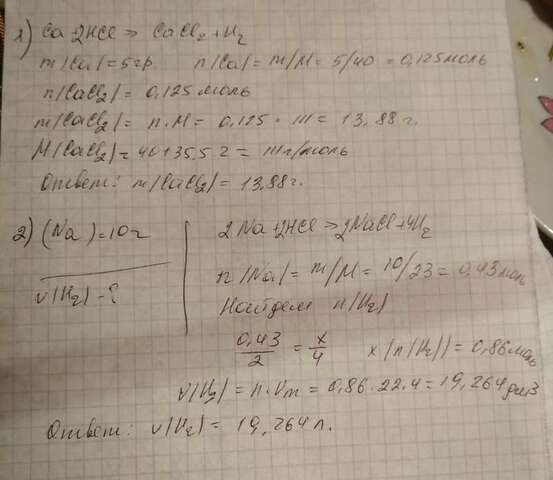 1) Ca+2HCl => CaCl2+H2
m(Ca)=5гр. n(Ca)=m/M=5/40=0,125моль
n(CaCl2)=0,125моль
m(CaCl2)=n·M=0,125·111=13,88г.
M(CaCl2)=40+35,5·2=111г/моль
Ответ: m(CaCl2)=13,88г.
2) (Na)=10г
v(H2)-?
2Na+2HCl=>2NaCl+4H2
n(Na)=m/M=10/23=0,43моль
Найдем n(H2)
0,43/2=x/4 x(n(H2))=0,86моль
v(H2)=n·Vm=0,86·22.4=19,264дм3
Ответ: v(H2)=19,264л.